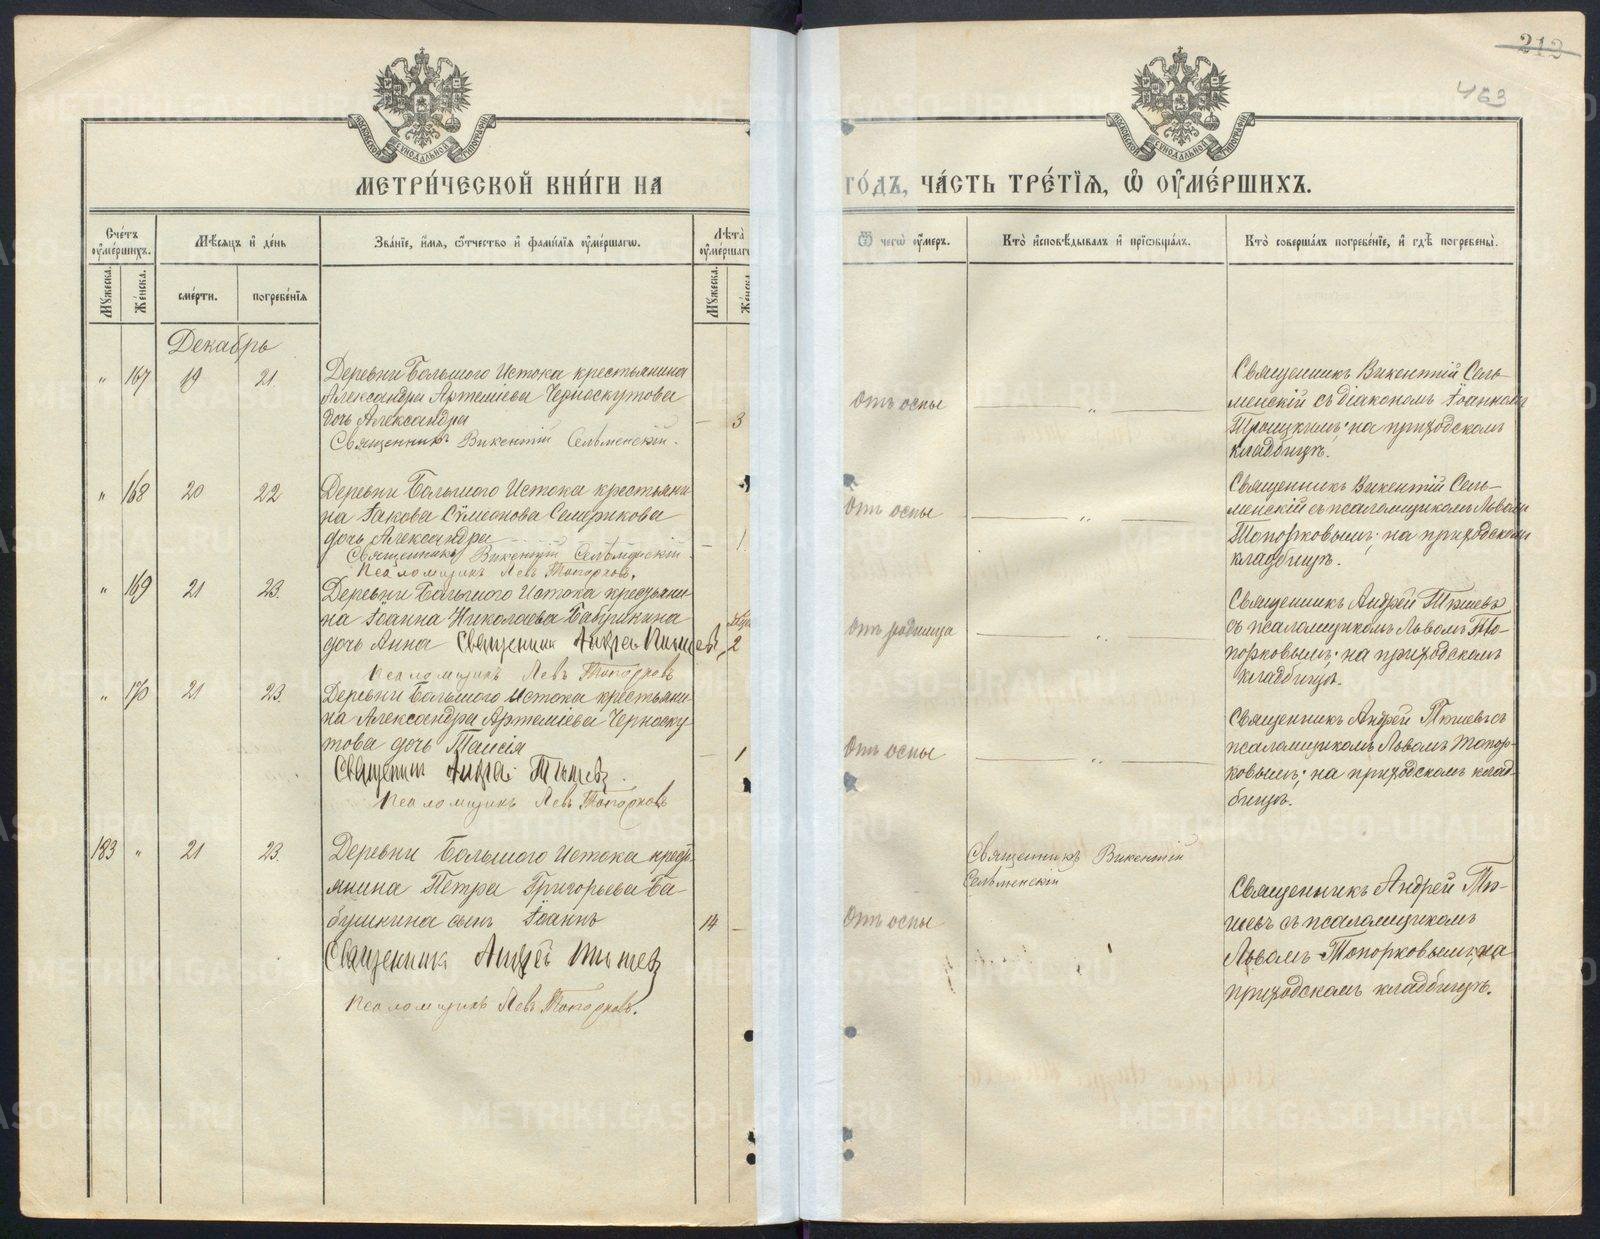 212
463
МОСКОВСКОЙ СѴНОДАЛЬНОЙ ТИПОГРАФІИ
МОСКОВСКОЙ СѴНОДАЛЬНОЙ ТИПОГРАФІИ
МЕТРИ́ЧЕСКОЙ КНИ́ГИ НА
ГО́ДЪ, ЧА́СТЬ ТРЕ́ТЇѦ, Ѡ҆ ОУ҆МЕ́РШИХЪ.
Сче́тъ оу҆ме́ршихъ.
Мꙋ́жеска.
Же́нска.
Мѣ́сѧцъ и҆ де́нь
сме́рти.
погребе́нїѧ
Зва́нїе, и҆́мѧ, ѻ҆́тчество и҆ фами́лїѧ оу҆ме́ршагѡ.
Лѣ́та оу҆ме́ршагѡ
Мꙋ́жеска.
Же́нска
Ѿ чегѡ̀ оу҆́меръ.
Кто̀ и҆сповѣ́дывалъ и҆ прїѡбща́лъ.
Кто̀ соверша́лъ погребе́нїе, и҆ гдѣ̀ погребены̀.
Декабрь
" 167 19 21.
Деревни Большого Истока крестьянина
Александра Артеміева Черноскутова
дочь Александра
— 3
Священникъ Викентій Сельменскій.
Отъ оспы
— " —
Священникъ Викентій Сель-
менскій съ діакономъ Іоанномъ
Троицкимъ; на приходскомъ
кладбищѣ.
" 168 20 22
Деревни Большого Истока крестьяни-
на Іакова Сѵмеонова Семерикова
дочь Александра
— 1.
Священникъ Викентій Сельменскій.
Псаломщикъ Левъ Топорковъ.
Отъ оспы
— " —
Священникъ Викентій Сель-
менскій съ псаломщикомъ Львомъ
Топорковымъ; на приходскомъ
кладбищѣ.
" 169 21 23.
Деревни Большого Истока крестьяни-
на Іоанна Николаева Бабушкина
дочь Анна Священник Андрей Тишев
2
Псаломщикъ Левъ Топорковъ
Отъ родимца
— " —
Священникъ Андрей Тишевъ
съ псаломщикомъ Львомъ То-
порковымъ; на приходскомъ
кладбищѣ.
" 170 21 23
Деревни Большого Истока крестьяни-
на Александра Артеміева Черноску-
това дочь Таисія
— 1
Священник Андрей Тишев.
Псаломщикъ Левъ Топорковъ
Отъ оспы
— " —
Священникъ Андрей Тишевъ съ
псаломщикомъ Львомъ Топор-
ковымъ; на приходскомъ клад-
бищѣ.
183 " 21 23.
Деревни Большого Истока кресть-
янина Петра Григорьева Ба-
бушкина сынъ Іоаннъ
14 —
Священник Андрей Тишев
Псаломщикъ Левъ Топорковъ.
Отъ оспы
Священникъ Викентій
Сельменскій
Священникъ Андрей Ти-
шевъ съ псаломщикомъ
Львомъ Топорковымъ; на
приходскомъ кладбищѣ.
METRIKI.GASO-URAL.RU